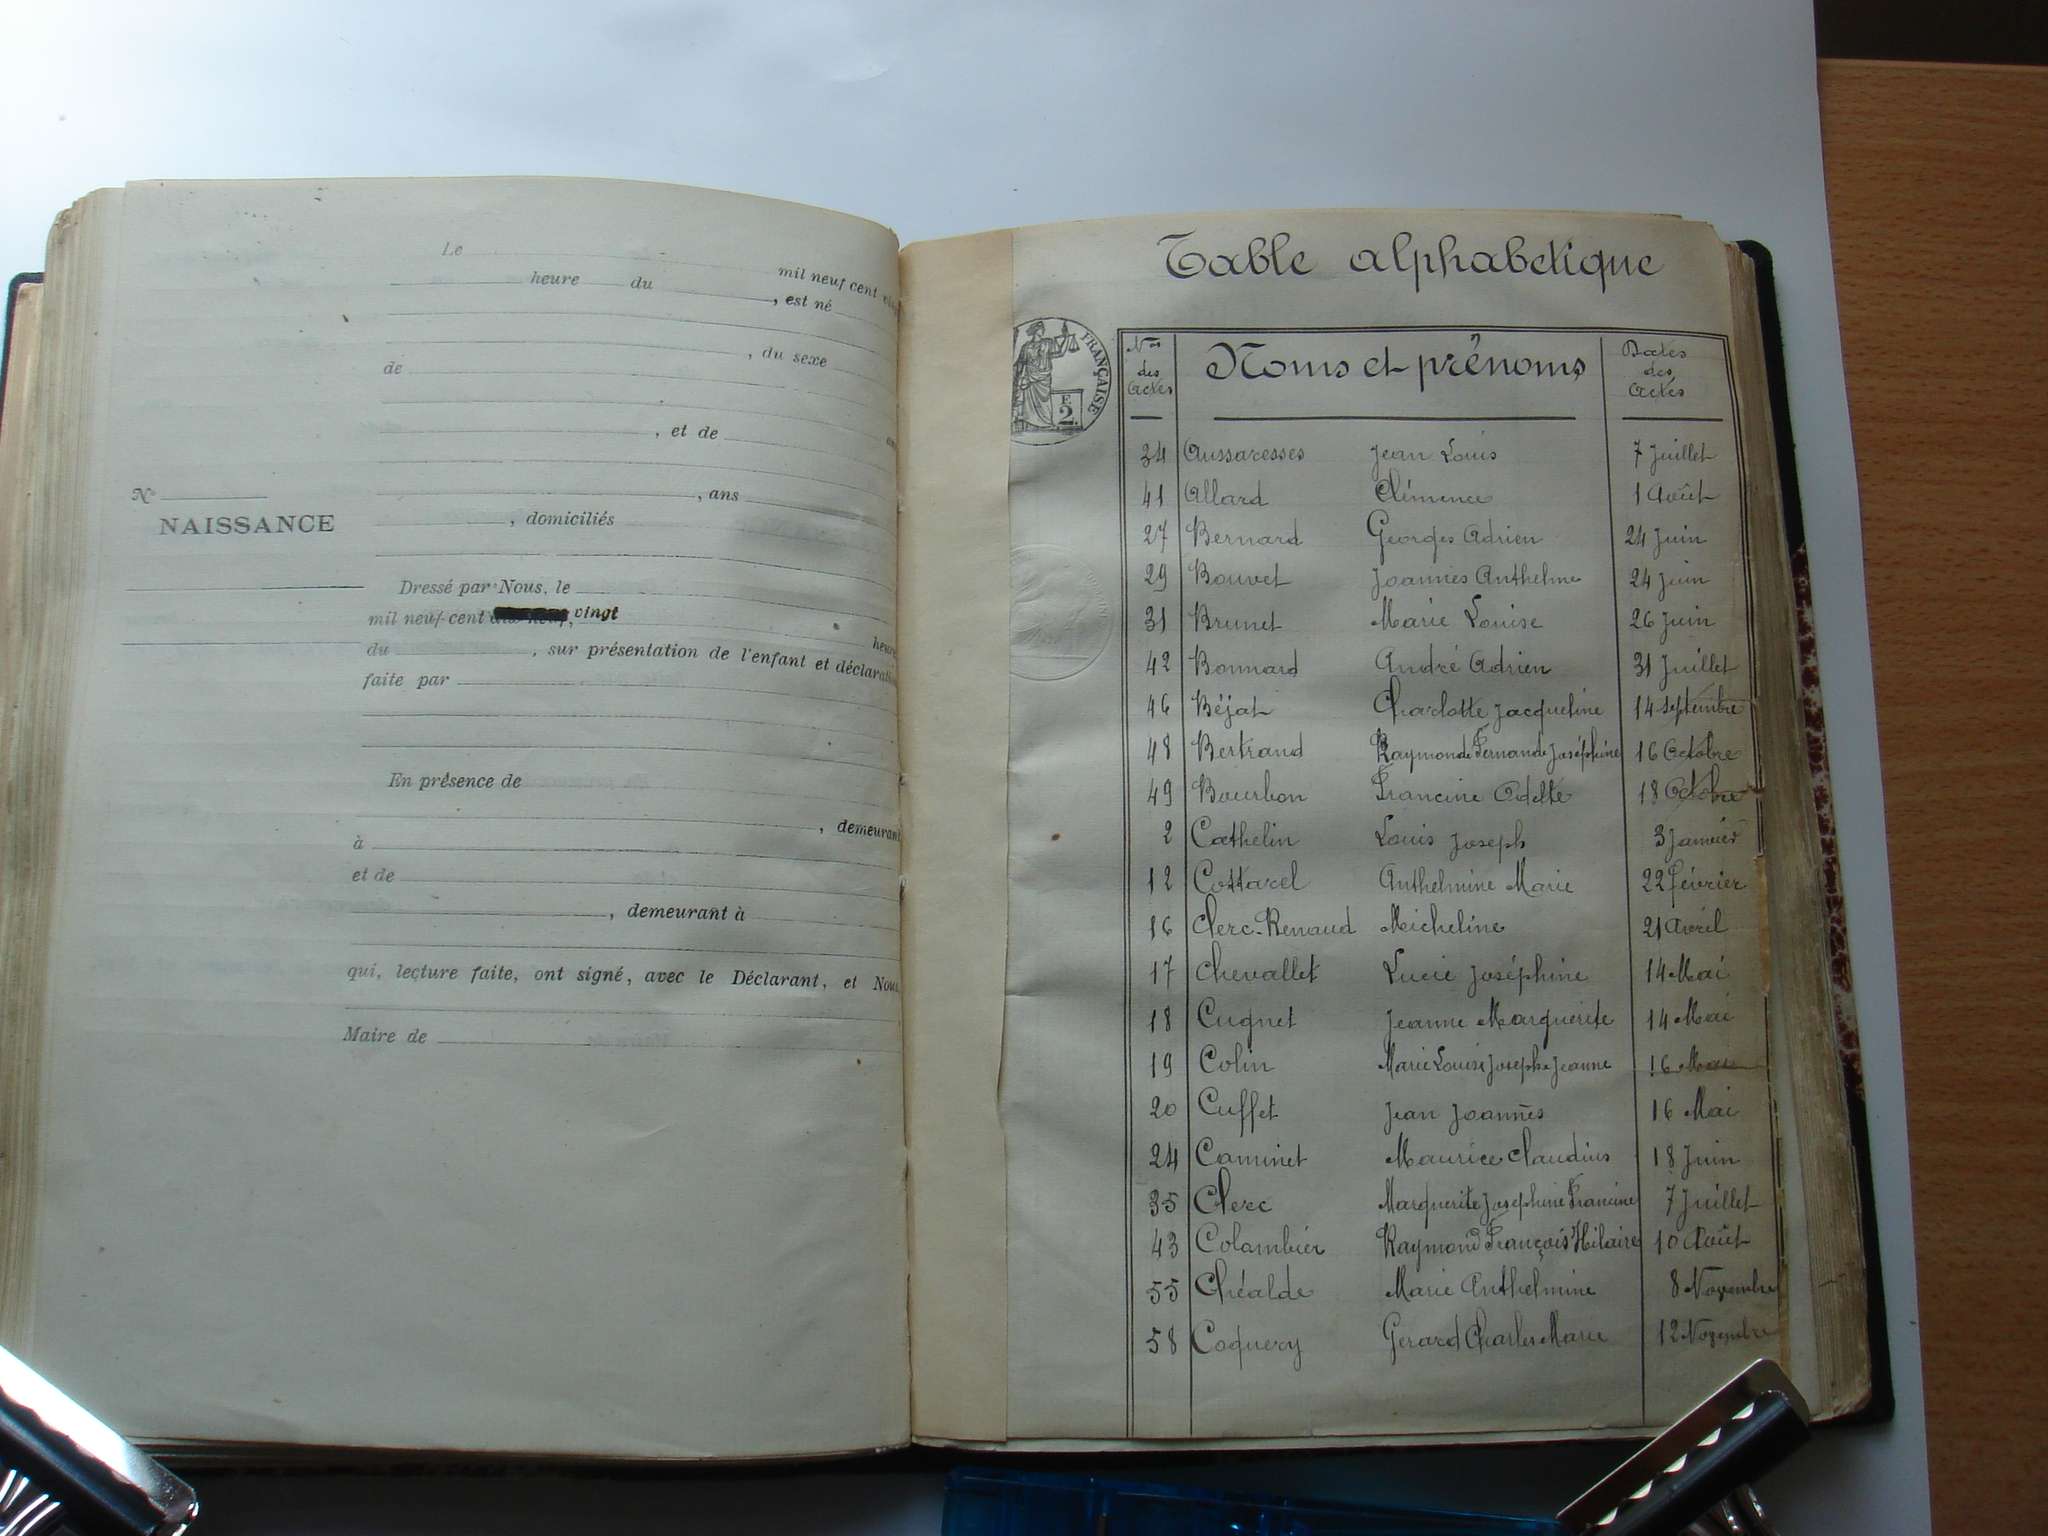 Le mil neuf cent
heure du , est né
, du sexe
de
, et de
, ans
, domiciliés
No
NAISSANCE
Dressé par Nous, le
mil neuf cent vingt
heure
du , sur présentation de l'enfant et déclarati
faite par
En présence de
, demeurant
à
et de
, demeurant à
qui, lecture faite, ont signé, avec le Déclarant, et Nous
Maire de
Table alphabetique
FRANÇAISE
F.
2.
Nos des Actes
Noms et prénoms
Dates des Actes
34 Aussaresses Jean Louis 7 Juillet
41 Allard Clémence 1 Août
27 Bernard Georges Adrien 24 Juin
29 Bouvet Joannès Anthelme 24 Juin
31 Brunet Marie Louise 26 Juin
42 Bonnard André Adrien 31 Juillet
46 Béjat Charlotte Jacqueline 14 Septembre
48 Bertrand Raymonde Fernande Joséphine 16 Octobre
49 Bourbon Francine Odette 18 Octobre
2 Cathelin Louis Joseph 3 Janvier
12 Cottarel Anthelmine Marie 22 Février
16 Clerc-Renaud Micheline 21 Avril
17 Chevallet Lucie Joséphine 14 Mai
18 Cugnet Jeanne Marguerite 14 Mai
19 Colin Marie Louise Josephe Jeanne 16 Mai
20 Cuffet Jean Joannès 16 Mai
24 Caminet Maurice Claudius 18 Juin
35 Clerc Marguerite Josephine Francine 7 Juillet
43 Colambier Raymond François Hilaire 10 Août
55 Chéalde Marie Anthelmine 8 Novembre
58 Coquery Gerard Charles Marie 12 Novembre